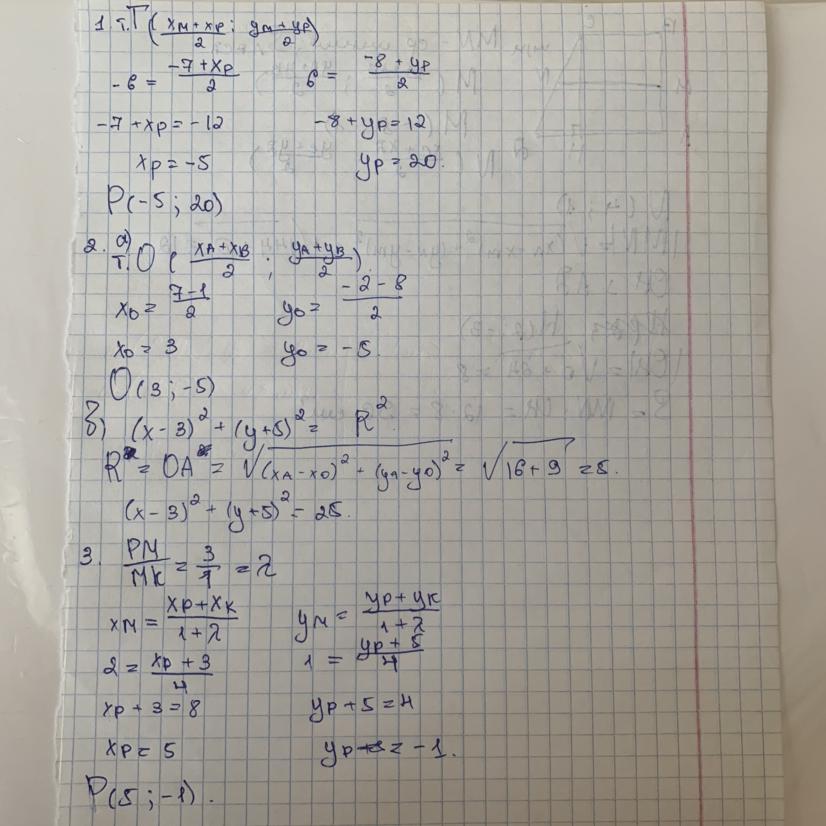 1. т. T ( (xм+xр)/2 ; (yм+yр)/2 )
-6 = (-7+xр)/2    6 = (-8+yр)/2
-7+xр = -12    -8+yр = 12
xр = -5    yр = 20.
P(-5 ; 20)
2. а) т. O ( (xA+xB)/2 ; (yA+yB)/2 )
x0 = (7-1)/2    y0 = (-2-8)/2
x0 = 3    y0 = -5.
O(3 ; -5)
б) (x-3)² + (y+5)² = R².
R = OA = √((xA-x0)² + (yA-y0)²) = √(16+9) = 5.
(x-3)² + (y+5)² = 25.
3. PM/MK = 3/1 = λ
xм = (xр+xк)/(1+λ)    yм = (yр+yк)/(1+λ)
2 = (xр+3)/4    1 = (yр+5)/4
xр + 3 = 8    yр + 5 = 4
xр = 5    yр = -1.
P(5 ; -1).